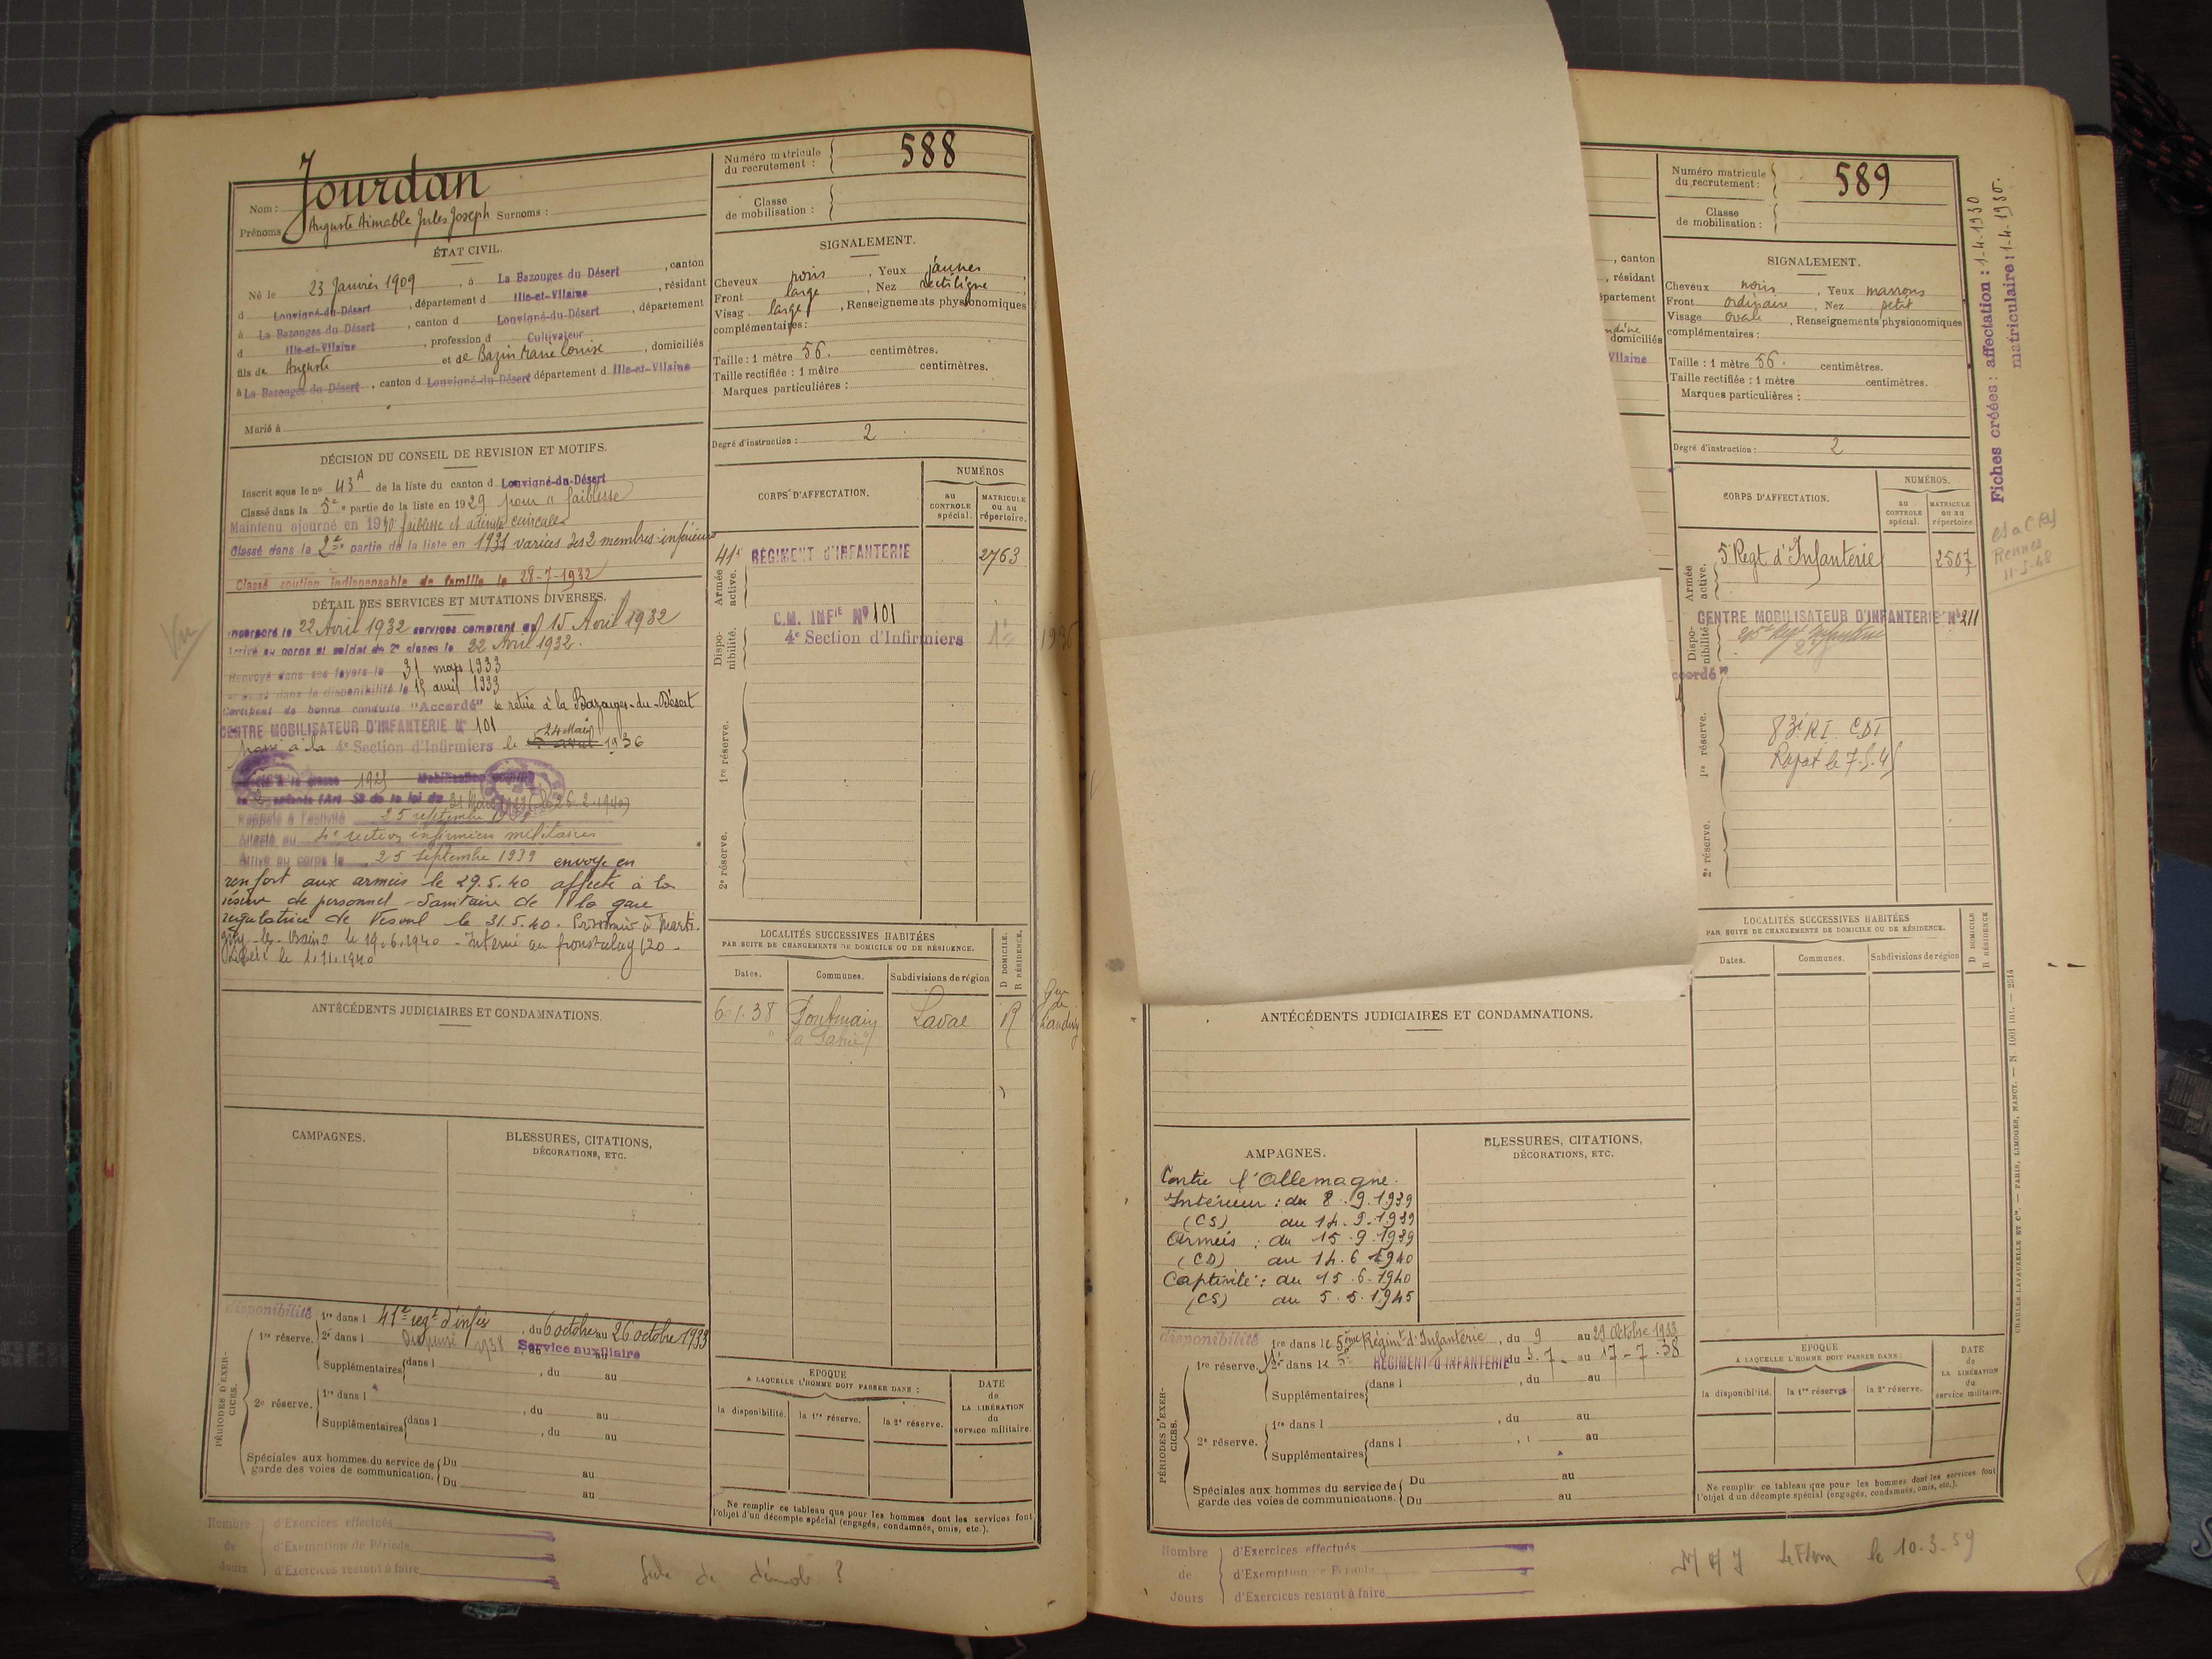 Nom : Jourdan
Prénoms Auguste Aimable Jules Joseph Surnoms :
ÉTAT CIVIL.
Né le 23 Janvier 1909, à La Bazouges du Désert, canton
d Louvigné-du-Désert, département d Ille-et-Vilaine, résidant
à La Bazouges du Désert, canton d Louvigné-du-Désert, département
d Ille-et-Vilaine, profession d Cultivateur
fils de Auguste et de Bazin Marie Louise, domiciliés
à La Bazouges du Désert, canton d Louvigné-du-Désert département d Ille-et-Vilaine
Marié à
DÉCISION DU CONSEIL DE REVISION ET MOTIFS.
Inscrit sous le nº 43 A de la liste du canton d Louvigné-du-Désert
Classé dans la 5e partie de la liste en 1929 pour faiblesse
Maintenu ajourné en 1930 faiblesse et adénite cervicale
Classé dans la 2e partie de la liste en 1931 varices des 2 membres inférieurs
Classé soutien indispensable de famille le 28-7-1932
DÉTAIL DES SERVICES ET MUTATIONS DIVERSES.
Incorporé le 22 Avril 1932 services comptent du 15 Avril 1932
Arrivé au corps et soldat de 2e classe le 22 Avril 1932.
Renvoyé dans ses foyers le 31 mars 1933
dans la disponibilité le 15 avril 1933
Certificat de bonne conduite "Accordé" se retire à la Bazouges-du-Désert
CENTRE MOBILISATEUR D'INFANTERIE Nº 101
24 Mai
passé à la 4e Section d'Infirmiers le 5 avril 1936
à la classe 192 Mobilisation
2 enfants (Art 58 de la loi du 31 Mars 1928) (le 26.2.1940)
Rappelé à l'activité 25 septembre 1939
Affecté au 4e section infirmiers militaires
Arrivé au corps le 25 septembre 1939 envoyé en
renfort aux armées le 29.5.40 affecté à la
réserve de personnel Sanitaire de la gare
régulatrice de Vesoul le 31.5.40. Prisonnier à Marti-
gny-les-Bains le 19.6.1940 - Interné au frontstalag 120 -
Libéré le 1.11.1940
Vu
ANTÉCÉDENTS JUDICIAIRES ET CONDAMNATIONS.
CAMPAGNES.
BLESSURES, CITATIONS,
DÉCORATIONS, ETC.
PÉRIODES D'EXERCICES.
disponibilité 1re dans l 41e regt d'infie, du 6 octobre au 26 octobre 1933
1re réserve. 2e dans l Dispensé 1938 Service auxiliaire, du au
Supplémentaires dans l , du au
2e réserve. 1re dans l , du au
Supplémentaires dans l , du au
Spéciales aux hommes du service de garde des voies de communication. Du au
Du au
Nombre de Jours
d'Exercices effectués
d'Exemption de Période
d'Exercices restant à faire
fiche de démob ?
Numéro matricule du recrutement : 588
Classe de mobilisation :
SIGNALEMENT.
Cheveux noirs, Yeux jaunes,
Front large, Nez rectiligne,
Visag large, Renseignements physionomiques
complémentaires :
Taille : 1 mètre 56. centimètres.
Taille rectifiée : 1 mètre centimètres.
Marques particulières :
Degré d'instruction : 2
CORPS D'AFFECTATION.
NUMÉROS
au CONTROLE spécial.
MATRICULE ou au répertoire.
Armée active.
41e RÉGIMENT D'INFANTERIE 2763
Disponibilité.
C.M. INFIE Nº 101
4e Section d'Infirmiers
1re réserve.
2e réserve.
LOCALITÉS SUCCESSIVES HABITÉES
PAR SUITE DE CHANGEMENTS DE DOMICILE OU DE RÉSIDENCE.
D DOMICILE.
R RÉSIDENCE.
Dates. Communes. Subdivisions de région
6.1.38 Pontmain Laval R
EPOQUE
A LAQUELLE L'HOMME DOIT PASSER DANS :
la disponibilité. la 1re réserve. la 2e réserve.
DATE
de
LA LIBÉRATION
du
service militaire.
Ne remplir ce tableau que pour les hommes dont les services font
l'objet d'un décompte spécial (engagés, condamnés, omis, etc.).
, canton
, résidant
département
domiciliés
Vilaine
ANTÉCÉDENTS JUDICIAIRES ET CONDAMNATIONS.
AMPAGNES.
Contre l'Allemagne.
Intérieur : du 8.9.1939
(CS) au 14.9.1939
Armées : du 15.9.1939
(CD) au 14.6.1940
Captivité : du 15.6.1940
(CS) au 5.5.1945
BLESSURES, CITATIONS,
DÉCORATIONS, ETC.
PÉRIODES D'EXERCICES.
disponibilité 1re dans le 5ème Régimt d'Infanterie, du 9 au 29 Octobre 1933
1re réserve. 2e dans le 5e RÉGIMENT D'INFANTERIE du 3.7 au 17-7-38
Supplémentaires dans l , du au
2e réserve. 1re dans l , du au
Supplémentaires dans l , au
Spéciales aux hommes du service de garde des voies de communications. Du au
Du au
Nombre de Jours
d'Exercices effectués
d'Exemption de Période
d'Exercices restant à faire
le 10.3.59
Numéro matricule du recrutement : 589
Classe de mobilisation :
SIGNALEMENT.
Cheveux noirs, Yeux marrons
Front ordinaire, Nez petit
Visage ovale, Renseignements physionomiques
complémentaires :
Taille : 1 mètre 56. centimètres.
Taille rectifiée : 1 mètre centimètres.
Marques particulières :
Degré d'instruction : 2
CORPS D'AFFECTATION.
NUMÉROS.
au CONTROLE spécial.
MATRICULE ou au répertoire
Armée active.
5e Regt d'Infanterie 2507
Disponibilité.
CENTRE MOBILISATEUR D'INFANTERIE Nº 211
1re réserve.
83e RI. CDT
Rapat le 7.5.45
2e réserve.
LOCALITÉS SUCCESSIVES HABITÉES
PAR SUITE DE CHANGEMENTS DE DOMICILE OU DE RÉSIDENCE.
D DOMICILE
R RÉSIDENCE
Dates. Communes. Subdivisions de région
EPOQUE
A LAQUELLE L'HOMME DOIT PASSER DANS :
la disponibilité. la 1re réserve. la 2e réserve.
DATE
de
LA LIBÉRATION
du
service militaire.
Ne remplir ce tableau que pour les hommes dont les services font
l'objet d'un décompte spécial (engagés, condamnés, omis, etc.).
Fiches créées : affectation : 1-4-1930
matriculaire : 1-4-1930.
Rennes
11-5-48
CHARLES LAVAUZELLE ET Cie. — PARIS, LIMOGES, NANCY. — N. 1001 int. — 2514